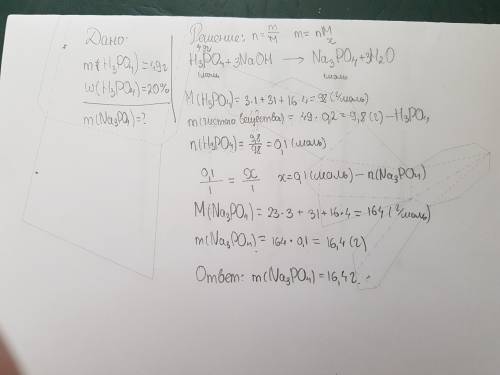 Дано:
m(H₃PO₄)=49г
w(H₃PO₄)=20%
m(Na₃PO₄)=?
Решение: n=m/M m=nM
49г
H₃PO₄+3NaOH → Na₃PO₄+3H₂O
1моль 1моль
M(H₃PO₄)=3·1+31+16·4=98(г/моль)
m(чистого вещества)=49·0,2=9,8(г)–H₃PO₄
n(H₃PO₄)=9,8/98=0,1(моль)
0,1/1=x/1 x=0,1(моль)–n(Na₃PO₄)
M(Na₃PO₄)=23·3+31+16·4=164(г/моль)
m(Na₃PO₄)=164·0,1=16,4(г)
Ответ: m(Na₃PO₄)=16,4г.